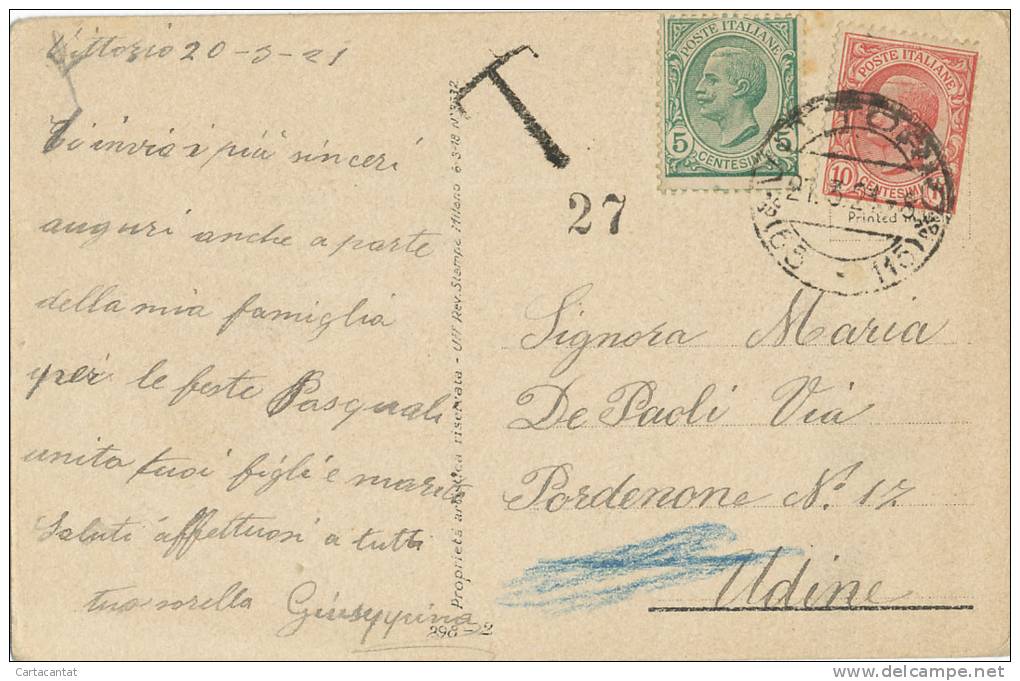 Vittorio 20-3-21
Ti invio i più sinceri
auguri anche a parte
della mia famiglia
per le feste Pasquali
unita tuoi figli e marito
Saluti affettuosi a tutti
tua sorella Giuseppina
Proprietà artistica riservata - Uff. Rev. Stampa Milano 6-3-18 N.
898-2
T
27
POSTE ITALIANE
5 CENTESIMI 5
POSTE ITALIANE
10 CENTESIMI
Printed in
21.3.21
(115)
Signora Maria
De Paoli Via
Pordenone N.° 17
Udine
Cartacantat
delcampe.net